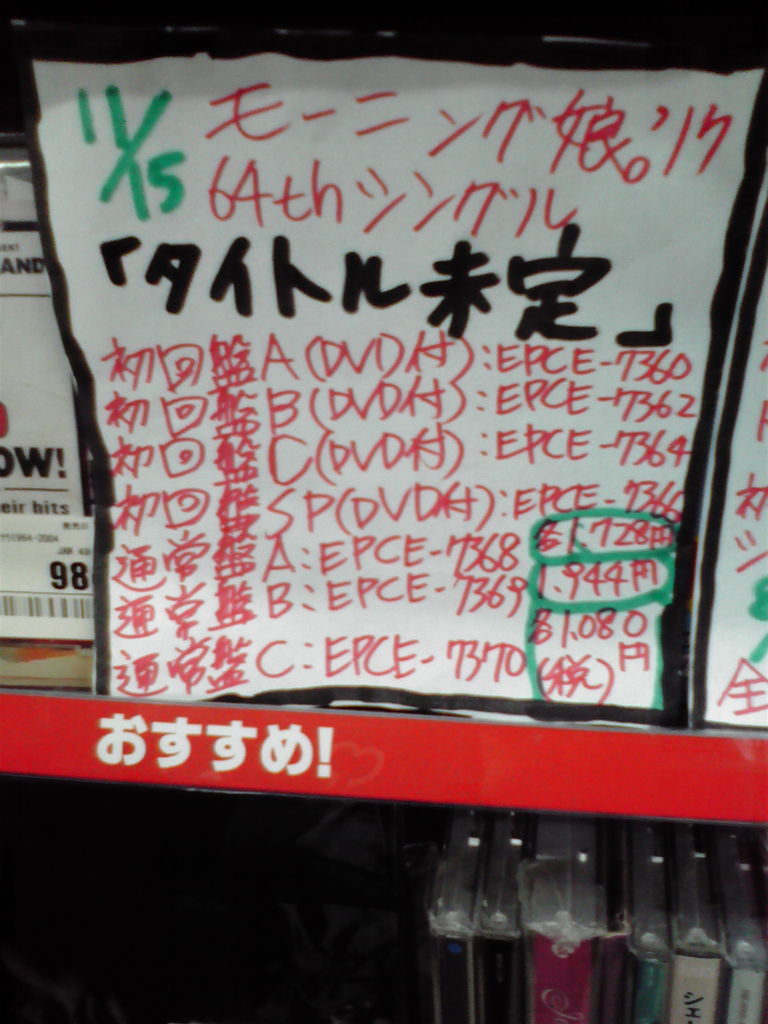 11/15 モーニング娘。'17
64thシングル
「タイトル未定」
初回盤A(DVD付):EPCE-7360
初回盤B(DVD付):EPCE-7362
初回盤C(DVD付):EPCE-7364
初回盤SP(DVD付):EPCE-7366
各1,728円
通常盤A:EPCE-7368
1,944円
通常盤B:EPCE-7369
各1,080円
通常盤C:EPCE-7370
(税)
おすすめ!
AND
OW!
eir hits
1964-2004
98
全